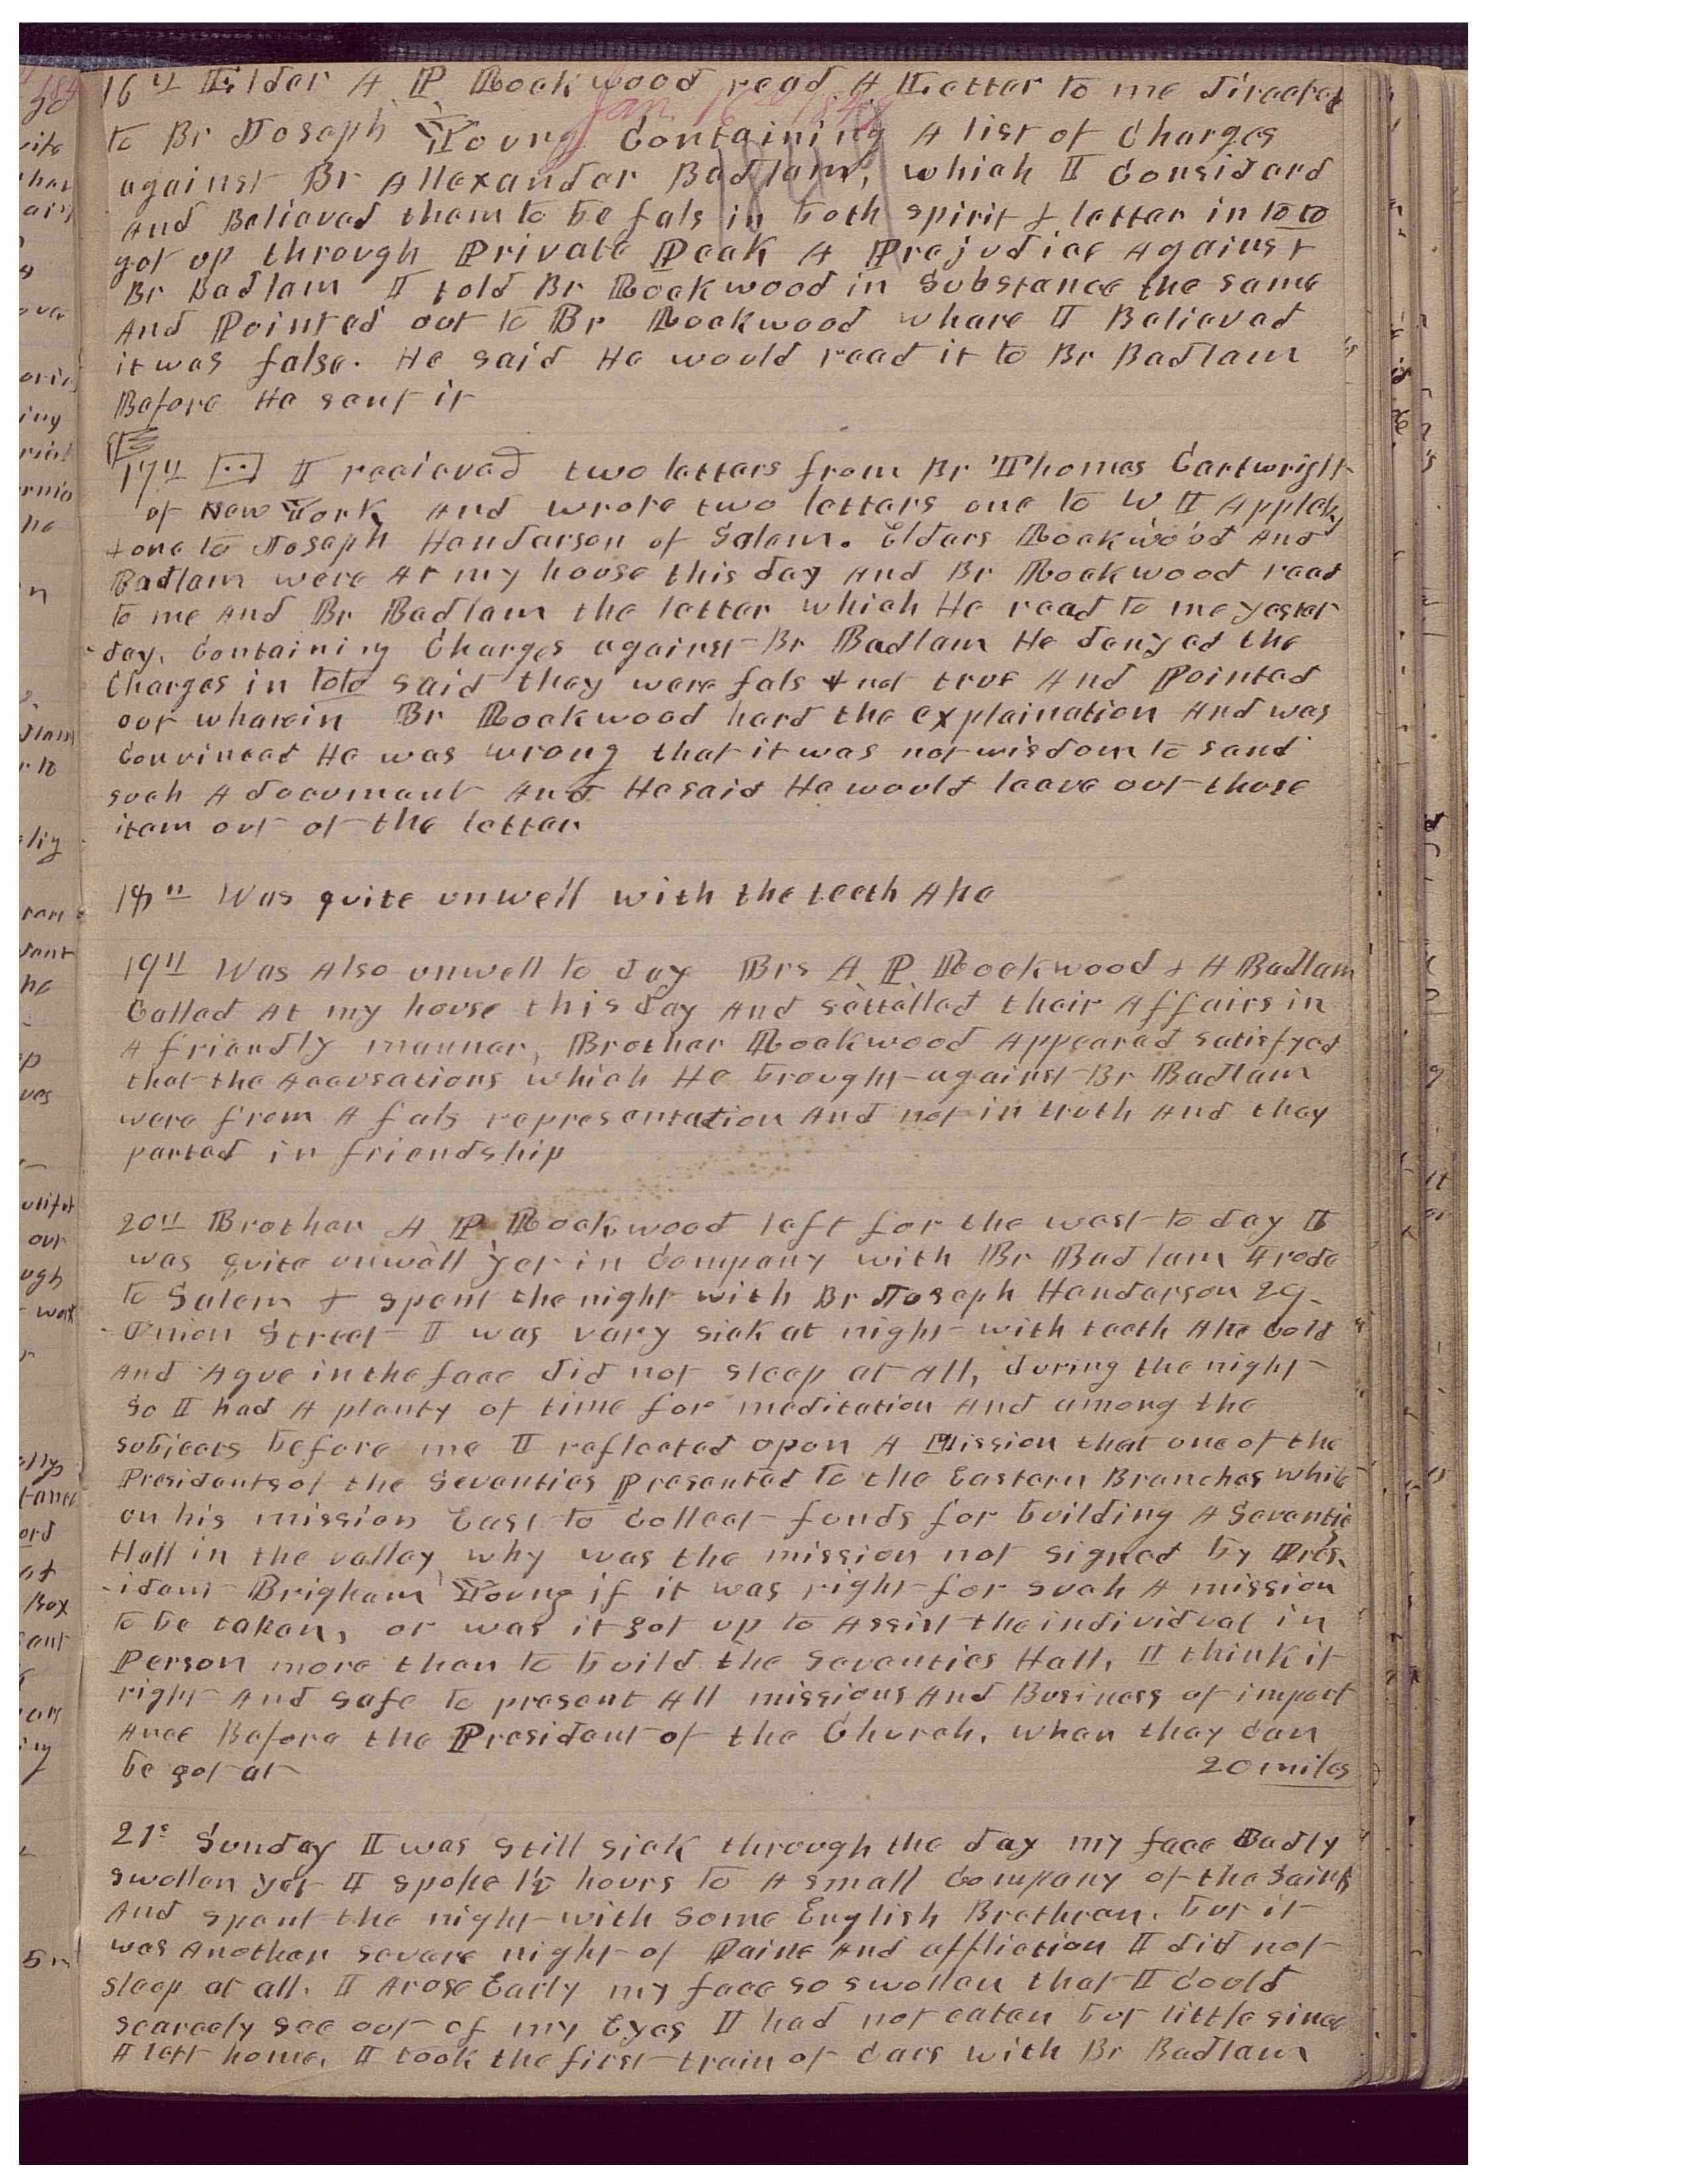 16th Elder A P Rockwood read A Letter to me directed
Jan 16th 1849
to Br Joseph Young Containing A list of Charges
1849
against Br Allexander Badlam, which I Considerd
And Believed them to be fals in both spirit & letter in toto
got up through Private Peak & Prejudice Against
Br Badlam I told Br Rockwood in Substance the same
And Pointed out to Br Rockwood whare I Believed
it was false. He said He would read it to Br Badlam
Before He sent it
17th I recieved two letters from Br Thomas Cartwright
of New York And wrote two letters one to W I Appleby
& one to Joseph Henderson of Salem. Elders Rockwood And
Badlam were At my house this day And Br Rockwood read
to me And Br Badlam the letter which He read to me yester
day. Containing Charges against Br Badlam He denyed the
Charges in toto said they were fals & not true And Pointed
out wharein Br Rockwood hard the explaination And was
Convinced He was wrong that it was not wisdom to send
such A document And He said He would leave out those
item out of the letter
18th Was quite unwell with the teeth Ake
19th Was Also unwell to day Brs A P Rockwood & A Badlam
Called At my house this day And settelled their Affairs in
A friendly manner, Brother Rockwood Appeared satisfyed
that the Accusations which He brought against Br Badlam
were from A fals representation And not in truth And they
parted in friendship
20th Brother A P Rockwood left for the west to day I
was quite unwell yet in Company with Br Badlam I rode
to Salem & spent the night with Br Joseph Henderson 29
Union Street I was very sick at night with teeth Ake Cold
And Ague in the face did not sleep at All, during the night
So I had A plenty of time for meditation And among the
subjects before me I reflected upon A Mission that one of the
Presidents of the Seventies Presented to the Eastern Branches while
on his mission East to Collect funds for building A Seventies
Hall in the valley why was the mission not signed by Pres-
ident Brigham Young if it was right for such A mission
to be taken, or was it got up to Assist the individual in
Person more than to build the Seventies Hall, I think it
right And safe to present All missions And Business of import
ance Before the President of the Church, when they Can
be got at 20 miles
21s Sunday I was still sick through the day my face Badly
swollen yet I spoke 1½ hours to A small Company of the Saints
And spent the night with Some English Brethren. but it
was Another severe night of Paine And affliction I did not
sleep at all. I Arose Early my face so swollen that I Could
scarcely see out of my Eyes I had not eaten but little since
I left home. I took the first train of Cars with Br Badlam